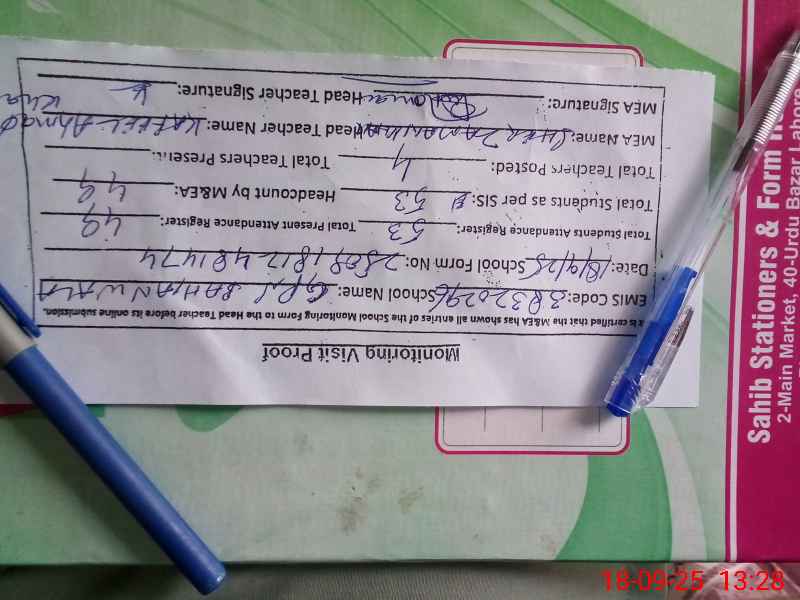 Monitoring Visit Proof
It is certified that the M&EA has shown all entries of the School Monitoring Form to the Head Teacher before its online submission.
EMIS Code: 38320296 School Name: GPS
Date: 18/9/25 School Form No: 2509181124814 74
Total Students Attendance Register: 53 Total Present Attendance Register: 49
Total Students as per SIS: 53 Headcount by M&EA: 49
Total Teachers Posted: 4 Total Teachers Present:
MEA Name: Head Teacher Name: Ahmad
MEA Signature: Head Teacher Signature:
Sahib Stationers & Form
2-Main Market, 40-Urdu Bazar Lahore
18-09-25 13:28